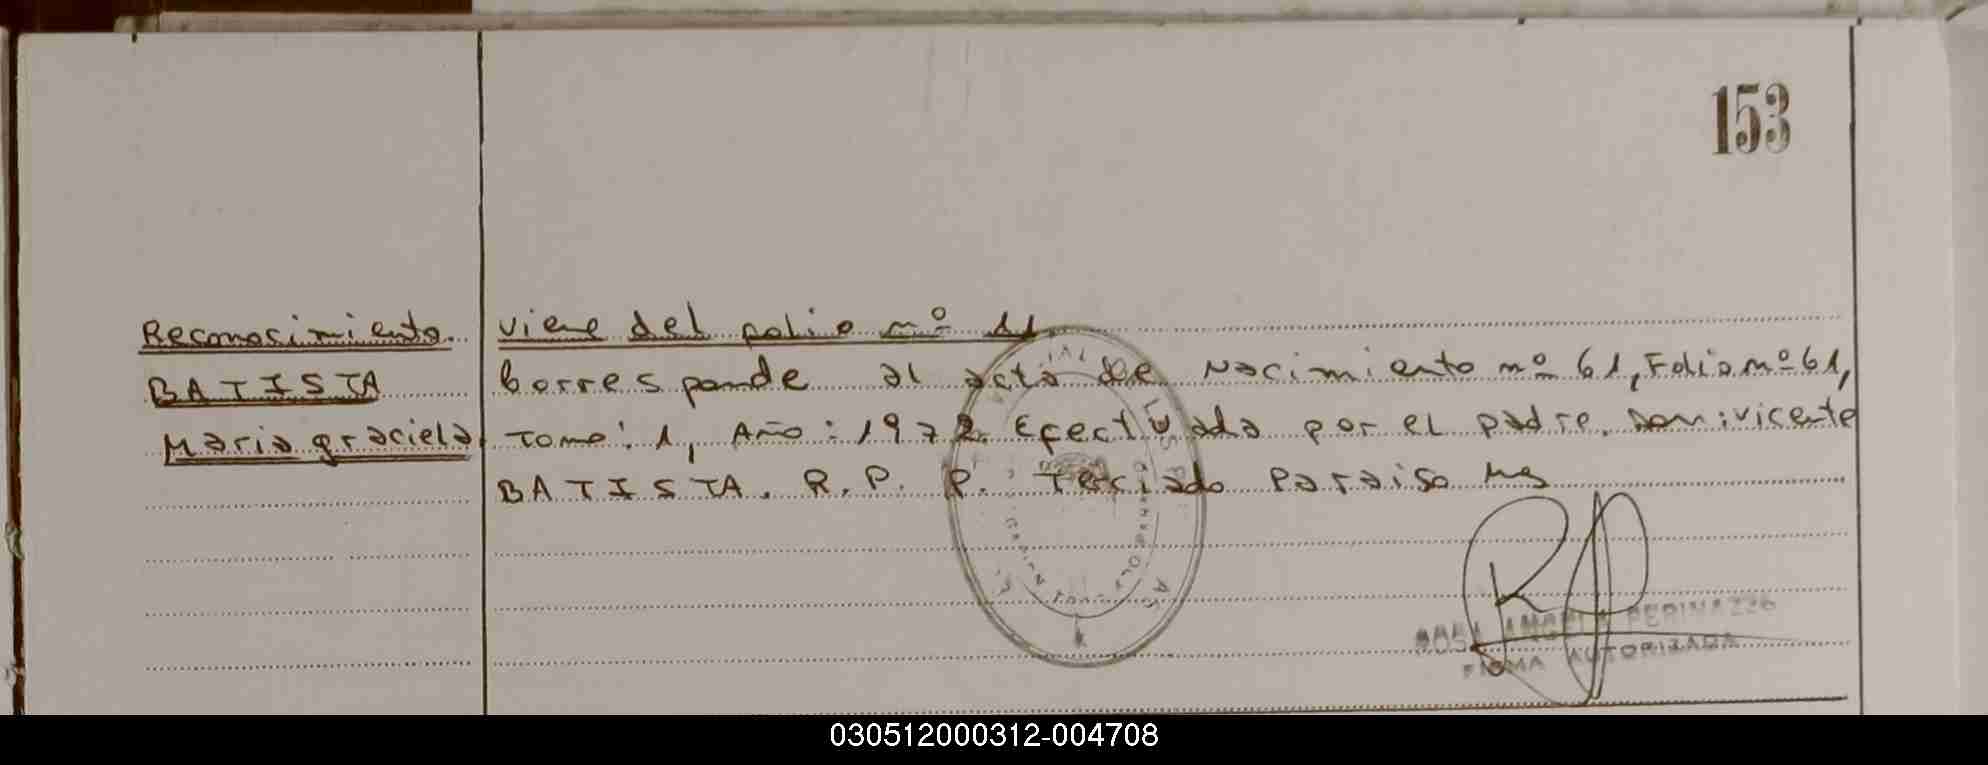 153
Reconocimiento. viene del folio nº 11
BATISTA Corresponde al acta de Nacimiento nº 61, Folio nº 61,
Maria graciela Tomo: 1, Año: 1972. Efectuada por el padre. Don: vicente
BATISTA. R.P. P. Terciado Paraiso Ms
ROSA ANGELA PERINAZZO
FIRMA AUTORIZADA
030512000312-004708